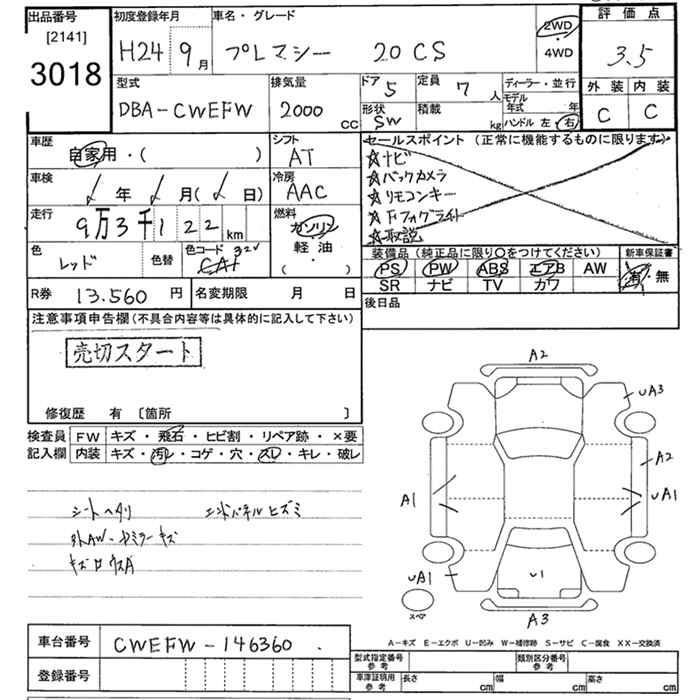 出品番号
[2141]
3018
初度登録年月
H24 9月
車名・グレード
プレマシー 20CS
2WD
・
4WD
評価点
3.5
外装 内装
C C
型式
DBA-CWEFW
排気量
2000 cc
ドア 5
定員 7人
形状 SW
積載 kg
ディーラー・並行
モデル年式 年
ハンドル 左 右
車歴
自家用・( )
シフト
AT
車検
年 月( 日)
冷房
AAC
走行
9万3千122km
燃料
ガソリン
軽油
( )
色
レッド
色替
色コード 32V
CA1
R券 13.560円
名変期限 月 日
セールスポイント(正常に機能するものに限ります)
☆ナビ
☆バックカメラ
☆リモコンキー
☆Fフォグライト
☆取説
装備品(純正品に限り○をつけてください)
PS PW ABS エアB AW
SR ナビ TV カワ
新車保証書
有・無
後日品
注意事項申告欄(不具合内容等は具体的に記入して下さい)
売切スタート
修復歴 有 〔箇所 〕
検査員
記入欄
FW キズ・飛石・ヒビ割・リペア跡・×要
内装 キズ・汚レ・コゲ・穴・スレ・キレ・破レ
シートヘタリ
エンドパネルヒズミ
外AW・ドミラーキズ
A2
UA3
A2
A1
UA1
UA1
U1
A3
スペア
A-キズ E-エクボ U-凹み W-補修跡 S-サビ C-腐食 XX-交換済
車台番号 CWEFW-146360
登録番号
型式指定番号
参考
類別区分番号
参考
車庫証明用
参考
長さ cm 幅 cm 高さ cm